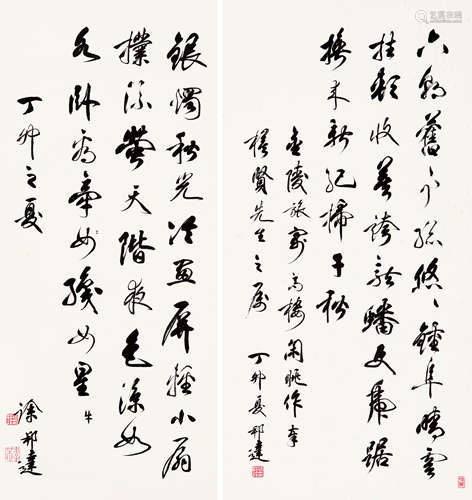 六朝舊事總悠〻鍾阜晴雲
挂額收莫誇龍蟠更虎踞
換來新紀掃千秋
金陵旅寓高樓閑眺作奉
賢先生之屬
丁卯夏邦達
銀燭秋光冷畫屏輕小扇
撲流螢天階夜色涼如
水卧看牽女織女星 牛
丁卯之夏
徐邦達